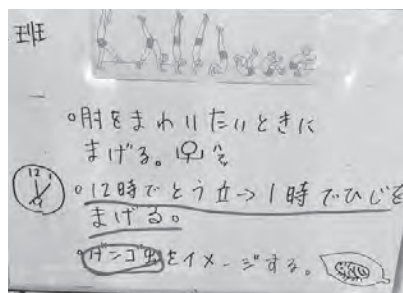 班
○肘をまわりたいときに
まげる。
12 1
○12時でとう立→1時でひじを
まげる。
○ダンゴ虫をイメージする。